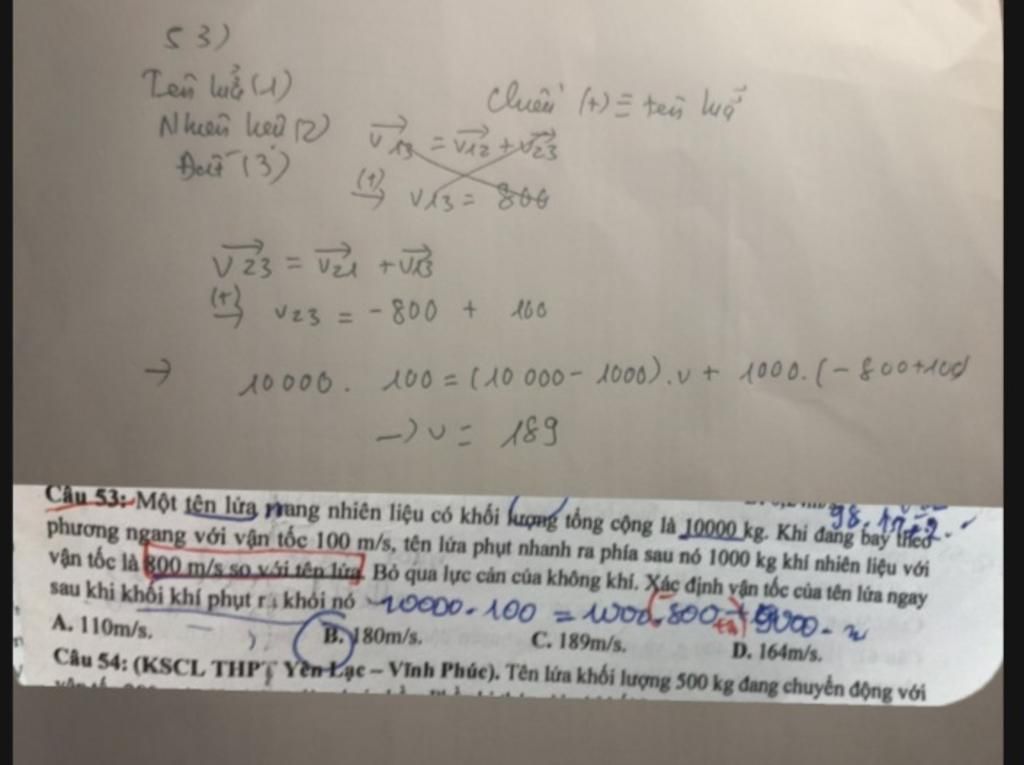 53)
Tên lửa (1)
Chiều (+) ≡ tên lửa
Nhiên liệu (2)
v13 = v12 + v23
Đất (3)
(+) → v13 = 800
v23 = v21 + v13
(+) → v23 = -800 + 100
→ 10000. 100 = (10 000 - 1000). v + 1000. (-800+100)
→ v = 189
Câu 53: Một tên lửa mang nhiên liệu có khối lượng tổng cộng là 10000 kg. Khi đang bay theo
phương ngang với vận tốc 100 m/s, tên lửa phụt nhanh ra phía sau nó 1000 kg khí nhiên liệu với
vận tốc là 800 m/s so với tên lửa. Bỏ qua lực cản của không khí. Xác định vận tốc của tên lửa ngay
sau khi khối khí phụt ra khỏi nó
10000.100 = 1000.
A. 110m/s. B. 180m/s. C. 189m/s. D. 164m/s.
Câu 54: (KSCL THPT Yên Lạc – Vĩnh Phúc). Tên lửa khối lượng 500 kg đang chuyển động với